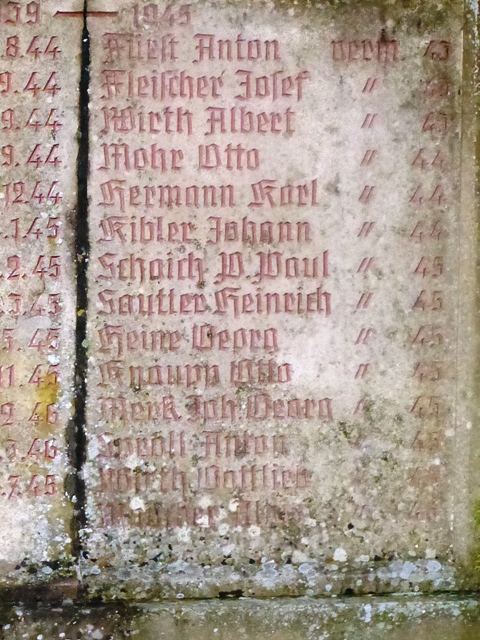 39 — 1945
.8.44 Fürst Anton verm. 43
9.44 Fleischer Josef "
9.44 Wirth Albert " 43
9.44 Mohr Otto " 44
12.44 Hermann Karl " 44
.1.45 Kibler Johann " 44
2.45 Schaich P. Paul " 45
3.45 Sautter Heinrich " 45
5.45 Heine Georg " 45
11.45 Knaupp Otto " 45
2.46 Merk Joh. Georg " 45
3.46 Anton 45
.7.45 Wirth Gottlieb